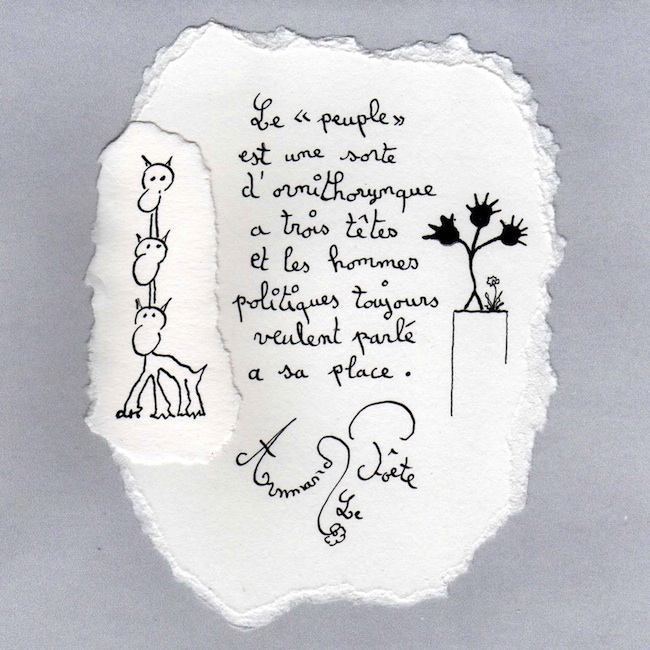 Le « peuple »
est une sorte
d'ornithorynque
a trois têtes
et les hommes
politiques toujours
veulent parlé
a sa place.
Armand
Le
Poête